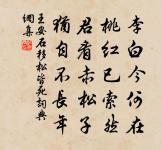 李白今何在
桃红已索然
君看赤松子
犹自不长年
王安石移松皆死词典
网集